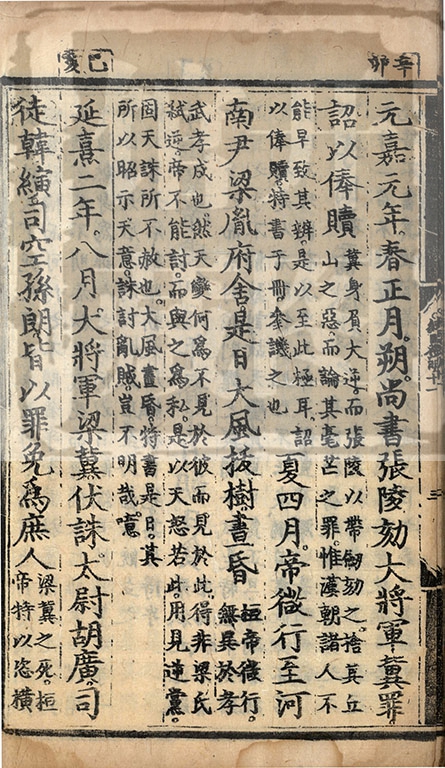 辛卯
元嘉元年。春正月。朔。尚書張陵劾大將軍冀罪
詔以俸贖
冀身負大逆。而張陵以帶劒劾之。捨其丘
山之惡而論其毫芒之罪。惟漢朝諸人不
能早致其辨。是以至此極耳。詔
以俸贖。特書于冊。參譏之也
夏四月。帝微行至河
南尹梁胤府舍。是日大風拔樹。晝昏
桓帝微行。
無異於孝
武孝成也。然天變何爲不見於彼而見於此。得非梁氏
弑逆。帝不能討。而與之爲私。是以天怒若此。用見逆黨。
固天誅所不赦也。大風晝昏。特書是日。其
所以昭示天意。誅討亂賊豈不明哉。噫
己亥
延熹二年。八月。大將軍梁冀伏誅。太尉胡廣。司
徒韓縯。司空孫朗。皆以罪免爲庶人
梁冀之死。桓
帝特以恣橫